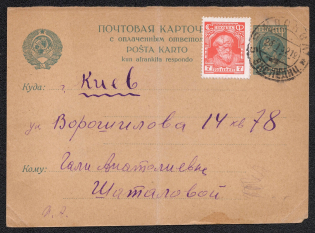 ПОЧТОВАЯ КАРТОЧКА
с оплаченным ответом
POŜTA KARTO
kun afrankita respondo
Куда: г. Киев
ул Ворошилова 14 кв 78
Кому: Гали Анатолиевне
Шаталовой